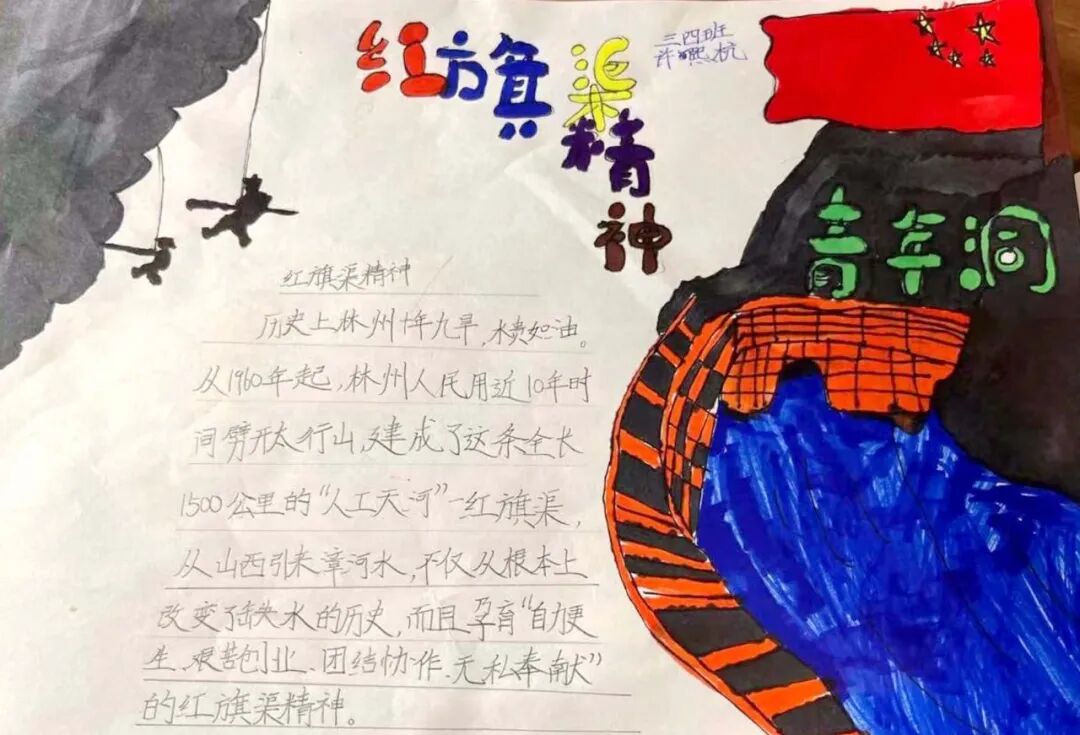 红旗渠精神
三四班
许熙杭
青年洞
红旗渠精神
历史上林州十年九旱,水贵如油。
从1960年起,林州人民用近10年时
间劈开太行山,建成了这条全长
1500公里的“人工天河”一红旗渠,
从山西引来漳河水,不仅从根本上
改变了缺水的历史,而且孕育“自力更
生、艰苦创业、团结协作、无私奉献”
的红旗渠精神。